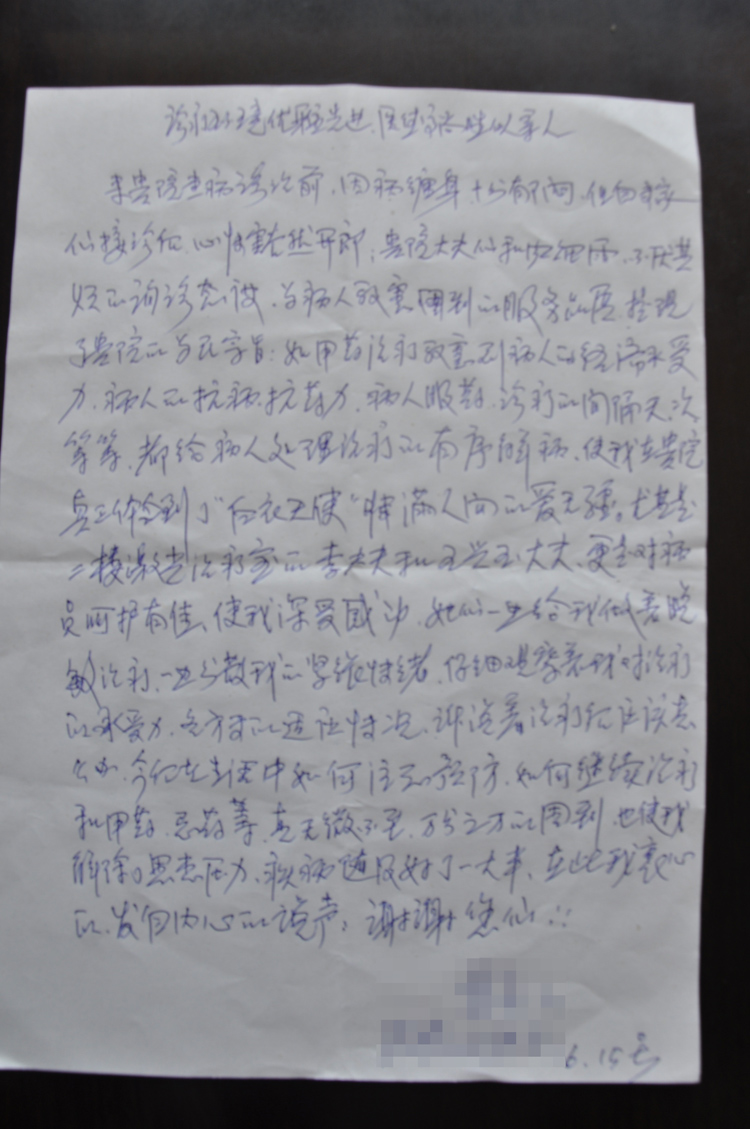 诊疗环境优雅先进、医患之情胜似亲人
来贵院查病诊治前,因病缠身十分苦闷,但自
们接诊后,心情豁然开朗;贵院大夫们和如细雨、不厌其
烦的询诊态度、为病人致意周到的服务品质体现
了贵院的为民宗旨:如用药治疗致意到病人的经济承受
力、病人的抗病抗药力、病人服药、诊疗的间隔天次
等等,都给病人处理治疗的有序解病,使我在贵院
真正体会到了“白衣天使”情满人间的爱无疆。尤其是
二楼激光治疗室的李大夫和王兰玉大夫,更是对病
员呵护有佳,使我深受感动,她们一边给我做着脱
敏治疗,一边分散我的紧张情绪、仔细观察着我对治疗
的承受力,各方面的适应情况,讲说着治疗后应该怎
么办,今后在生活中如何注意预防,如何继续治疗
和用药、忌药等,真无微不至,万分之万的周到,也使我
解除了思想压力,疾病随及好了一大半,在此我衷心
的、发自内心的说声:谢谢您们!
6.15号